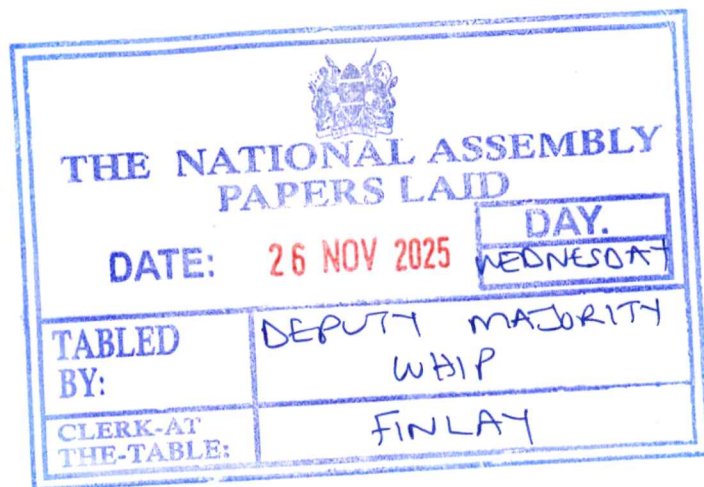 THE NATIONAL ASSEMBLY
PAPERS LAID
DATE: 26 NOV 2025
DAY.
WEDNESDAY
TABLED BY:
DEPUTY MAJORITY
WHIP
CLERK-AT
THE-TABLE:
FINLAY